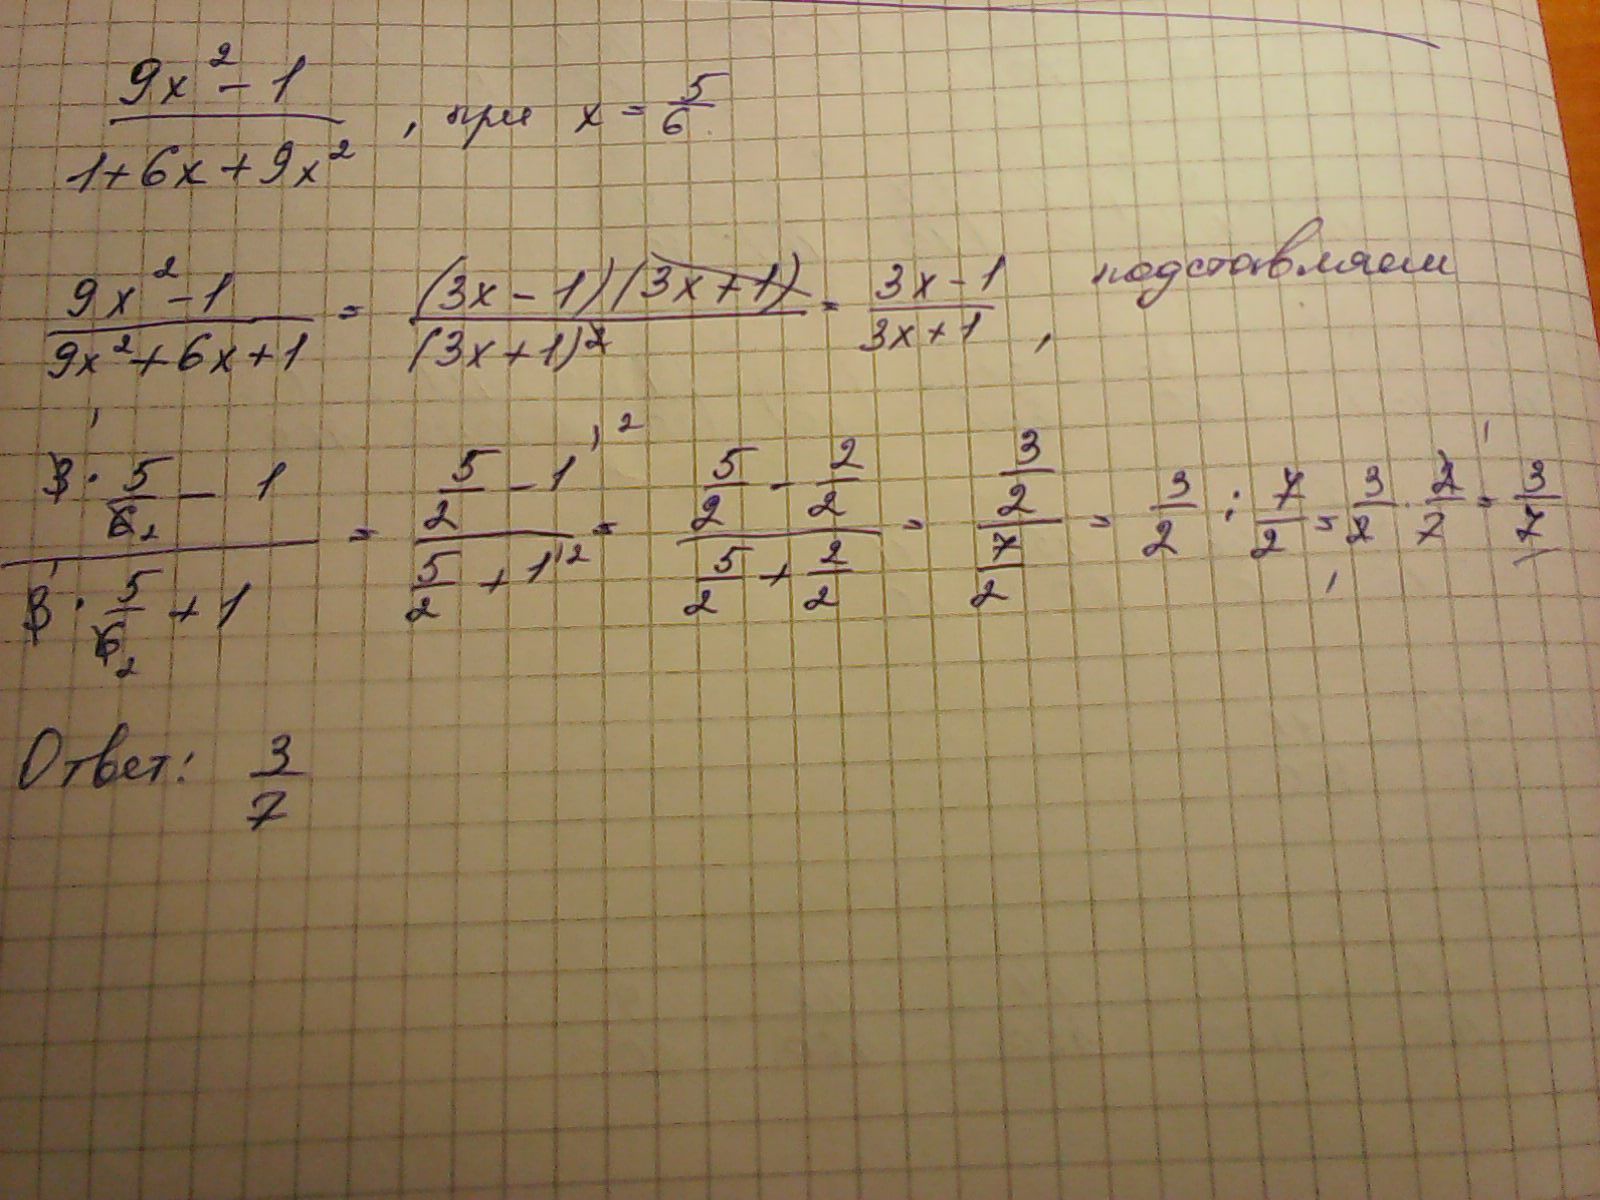 9x² - 1 / 1 + 6x + 9x² , при x = 5/6
9x² - 1 / 9x² + 6x + 1 = (3x - 1)(3x + 1) / (3x + 1)² = 3x - 1 / 3x + 1 , подставляем
3 · 5/6 - 1 / 3 · 5/6 + 1 = 5/2 - 1 / 5/2 + 1 = 5/2 - 2/2 / 5/2 + 2/2 = 3/2 / 7/2 = 3/2 : 7/2 = 3/2 · 2/7 = 3/7
Ответ: 3/7